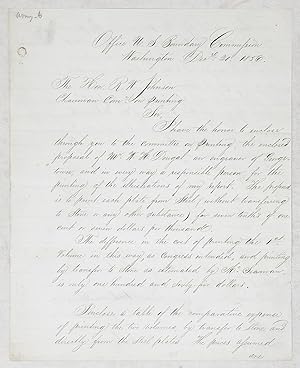 Office U. S. Boundary Commission
Washington Decr 20, 1858
The Hon. R. W. Johnson
Chairman Com. on printing
Sir
I have the honor to enclose
through you to the committee on printing, the enclosed
proposal of Mr. W. H. Dougal an engraver of George
town, and in every way a responsible person, for the
printing of the illustrations of my report. The proposal
is to print each plate from Steel, (without transferring
to Stone or any other substance) for seven tenths of one
cent or seven dollars per thousand.
The difference in the cost of printing the 1st
Volume in this way as Congress intended, and printing
by transfer to Stone as estimated by Mr. Seaman
is only one hundred and sixty five dollars.
I enclose a table of the comparative expense
of printing the two volumes by transfer to stone and
directly from the steel plates. The prices assumed
are